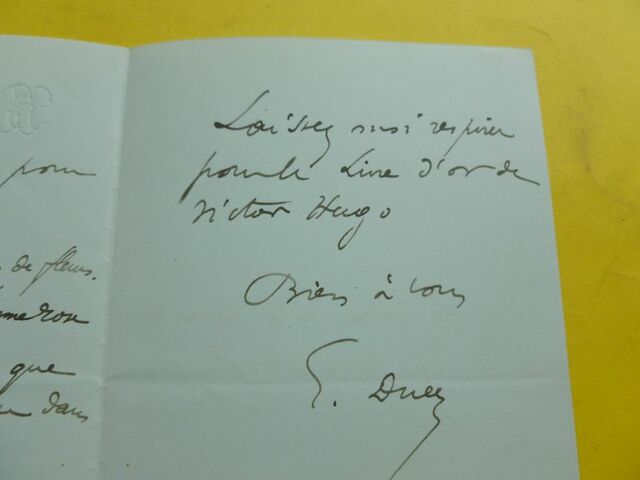 pour
de fleurs.
que
dans
Laissez moi respirer
pour le Livre d'or de
Victor Hugo
Bien à vous
E. Duez